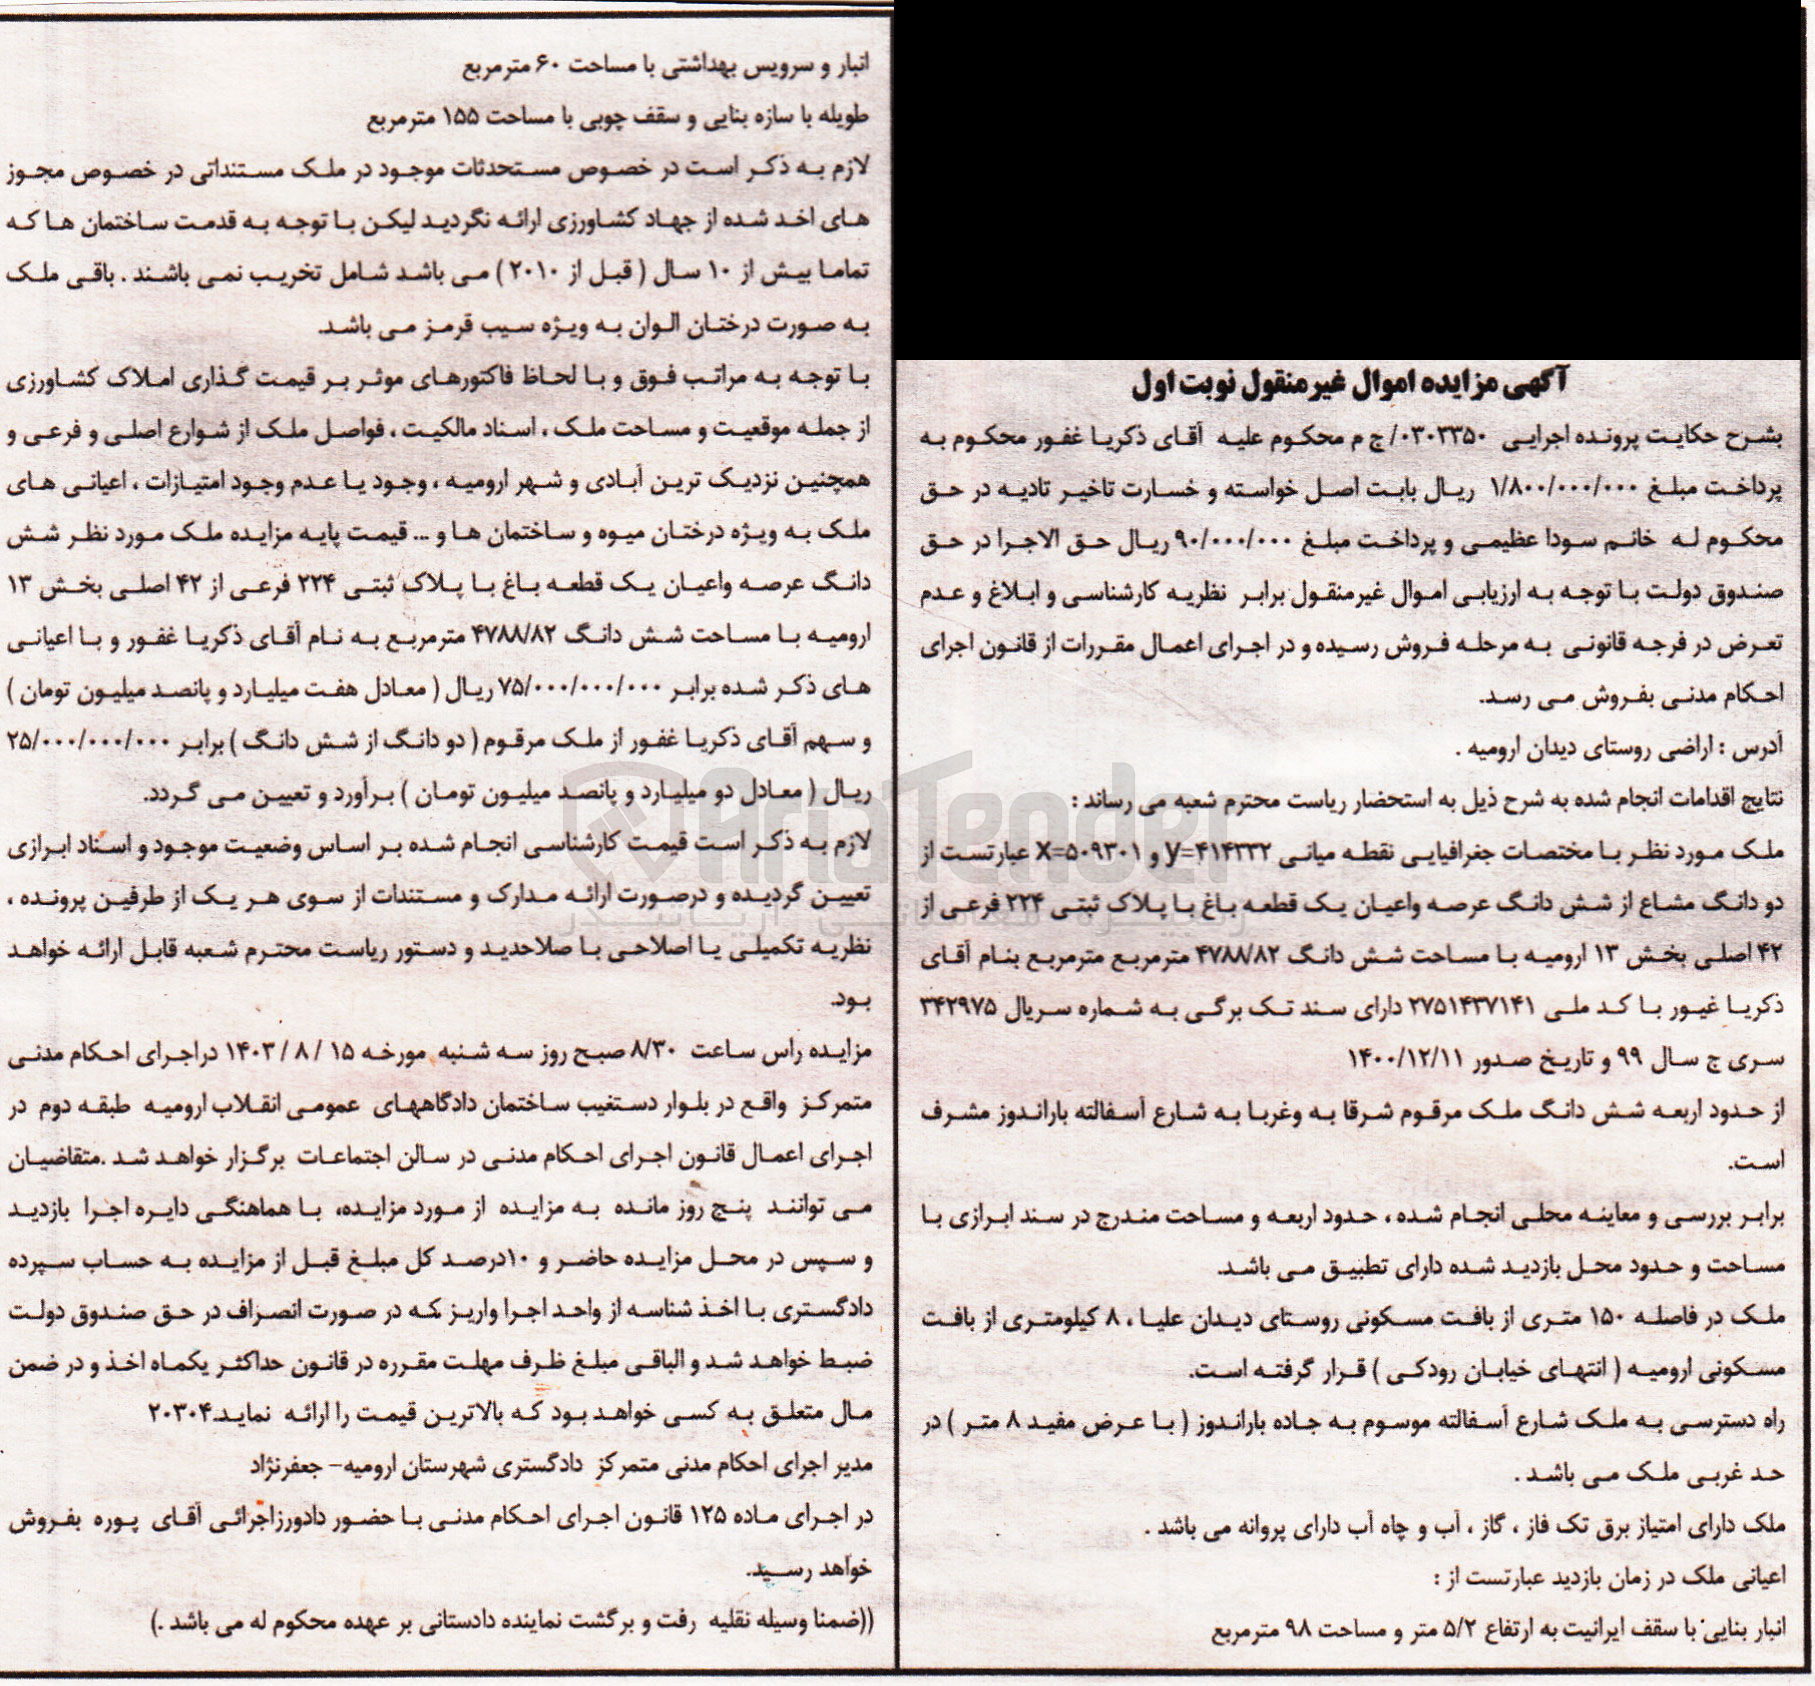 آگهی مزایده اموال غیرمنقول نوبت اول
بشرح حکایت پرونده اجرایی ۰۳۰۳۳۵۰/ ج م محکوم علیه آقای ذکریا غفور محکوم به
پرداخت مبلغ ۱/۸۰۰/۰۰۰/۰۰۰ ریال بابت اصل خواسته و خسارت تاخیر تادیه در حق
محکوم له خانم سودا عظیمی و پرداخت مبلغ ۹۰/۰۰۰/۰۰۰ ریال حق الاجرا در حق
صندوق دولت با توجه به ارزیابی اموال غیرمنقول برابر نظریه کارشناسی و ابلاغ و عدم
تعرض در فرجه قانونی به مرحله فروش رسیده و در اجرای اعمال مقررات از قانون اجرای
احکام مدنی بفروش می رسد.
آدرس : اراضی روستای دیدان ارومیه .
نتایج اقدامات انجام شده به شرح ذیل به استحضار ریاست محترم شعبه می رساند :
ملک مورد نظر با مختصات جغرافیایی نقطه میانی y=۴۱۴۳۳۲ و x=۵۰۹۳۰۱ عبارتست از
دو دانگ مشاع از شش دانگ عرصه واعیان یک قطعه باغ با پلاک ثبتی ۲۲۴ فرعی از
۴۲ اصلی بخش ۱۳ ارومیه با مساحت شش دانگ ۴۷۸۸/۸۲ مترمربع مترمربع بنام آقای
ذکریا غیور با کد ملی ۲۷۵۱۴۳۷۱۴۱ دارای سند تک برگی به شماره سریال ۳۴۲۹۷۵
سری ج سال ۹۹ و تاریخ صدور ۱۴۰۰/۱۲/۱۱
از حدود اربعه شش دانگ ملک مرقوم شرقا به وغربا به شارع آسفالته باراندوز مشرف
است.
برابر بررسی و معاینه محلی انجام شده ، حدود اربعه و مساحت مندرج در سند ابرازی با
مساحت و حدود محل بازدید شده دارای تطبیق می باشد.
ملک در فاصله ۱۵۰ متری از بافت مسکونی روستای دیدان علیا ، ۸ کیلومتری از بافت
مسکونی ارومیه ( انتهای خیابان رودکی ) قرار گرفته است.
راه دسترسی به ملک شارع آسفالته موسوم به جاده باراندوز ( با عرض مفید ۸ متر ) در
حد غربی ملک می باشد .
ملک دارای امتیاز برق تک فاز ، گاز ، آب و چاه آب دارای پروانه می باشد .
اعیانی ملک در زمان بازدید عبارتست از :
انبار بنایی با سقف ایرانیت به ارتفاع ۵/۲ متر و مساحت ۹۸ مترمربع
انبار و سرویس بهداشتی با مساحت ۶۰ مترمربع
طویله با سازه بنایی و سقف چوبی با مساحت ۱۵۵ مترمربع
لازم به ذکر است در خصوص مستحدثات موجود در ملک مستنداتی در خصوص مجوز
های اخد شده از جهاد کشاورزی ارائه نگردید لیکن با توجه به قدمت ساختمان ها که
تماما بیش از ۱۰ سال ( قبل از ۲۰۱۰ ) می باشد شامل تخریب نمی باشند . باقی ملک
به صورت درختان الوان به ویژه سیب قرمز می باشد.
با توجه به مراتب فوق و با لحاظ فاکتورهای موثر بر قیمت گذاری املاک کشاورزی
از جمله موقعیت و مساحت ملک ، اسناد مالکیت ، فواصل ملک از شوارع اصلی و فرعی و
همچنین نزدیک ترین آبادی و شهر ارومیه ، وجود یا عدم وجود امتیازات ، اعیانی های
ملک به ویژه درختان میوه و ساختمان ها و ... قیمت پایه مزایده ملک مورد نظر شش
دانگ عرصه واعیان یک قطعه باغ با پلاک ثبتی ۲۲۴ فرعی از ۴۲ اصلی بخش ۱۳
ارومیه با مساحت شش دانگ ۴۷۸۸/۸۲ مترمربع به نام آقای ذکریا غفور و با اعیانی
های ذکر شده برابر ۷۵/۰۰۰/۰۰۰/۰۰۰ ریال ( معادل هفت میلیارد و پانصد میلیون تومان )
و سهم آقای ذکریا غفور از ملک مرقوم ( دو دانگ از شش دانگ ) برابر ۲۵/۰۰۰/۰۰۰/۰۰۰
ریال ( معادل دو میلیارد و پانصد میلیون تومان ) برآورد و تعیین می گردد.
لازم به ذکر است قیمت کارشناسی انجام شده بر اساس وضعیت موجود و اسناد ابرازی
تعیین گردیده و درصورت ارائه مدارک و مستندات از سوی هر یک از طرفین پرونده ،
نظریه تکمیلی یا اصلاحی با صلاحدید و دستور ریاست محترم شعبه قابل ارائه خواهد
بود.
مزایده راس ساعت ۸/۳۰ صبح روز سه شنبه مورخه ۱۵ / ۸ / ۱۴۰۳ دراجرای احکام مدنی
متمرکز واقع در بلوار دستغیب ساختمان دادگاههای عمومی انقلاب ارومیه طبقه دوم در
اجرای اعمال قانون اجرای احکام مدنی در سالن اجتماعات برگزار خواهد شد .متقاضیان
می توانند پنج روز مانده به مزایده از مورد مزایده، با هماهنگی دایره اجرا بازدید
و سپس در محل مزایده حاضر و ۱۰درصد کل مبلغ قبل از مزایده به حساب سپرده
دادگستری با اخذ شناسه از واحد اجرا واریز که در صورت انصراف در حق صندوق دولت
ضبط خواهد شد و الباقی مبلغ ظرف مهلت مقرره در قانون حداکثر یکماه اخذ و در ضمن
مال متعلق به کسی خواهد بود که بالاترین قیمت را ارائه نماید.۲۰۳۰۴
مدیر اجرای احکام مدنی متمرکز دادگستری شهرستان ارومیه- جعفرنژاد
در اجرای ماده ۱۲۵ قانون اجرای احکام مدنی با حضور دادورزاجرائی آقای پوره بفروش
خواهد رسید.
((ضمنا وسیله نقلیه رفت و برگشت نماینده دادستانی بر عهده محکوم له می باشد .)
AriaTender